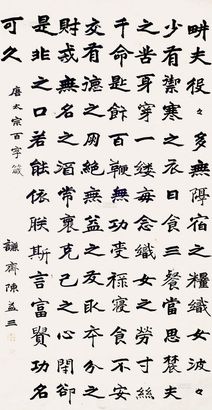 畊夫役々多無隔宿之糧織女波々
少有禦寒之衣日食三餐當思農夫
之苦身穿一縷每念織女之勞寸絲
千命匙飰百鞭無功受祿寢食不安
交有德之朋絕無益之友取本分之
財戒無名之酒常褱克己之心閉卻
是非之口若能依朕斯言富貴功名
可久
唐太宗百字箴
謙齋陳益三